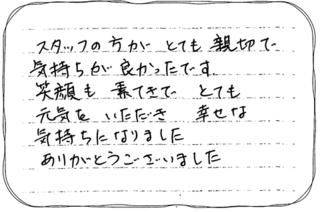 スタッフの方が とても 親切で
気持ちが良かったです.
笑顔も 素てきで とても
元気を いただき 幸せな
気持ちになりました
ありがとうございました